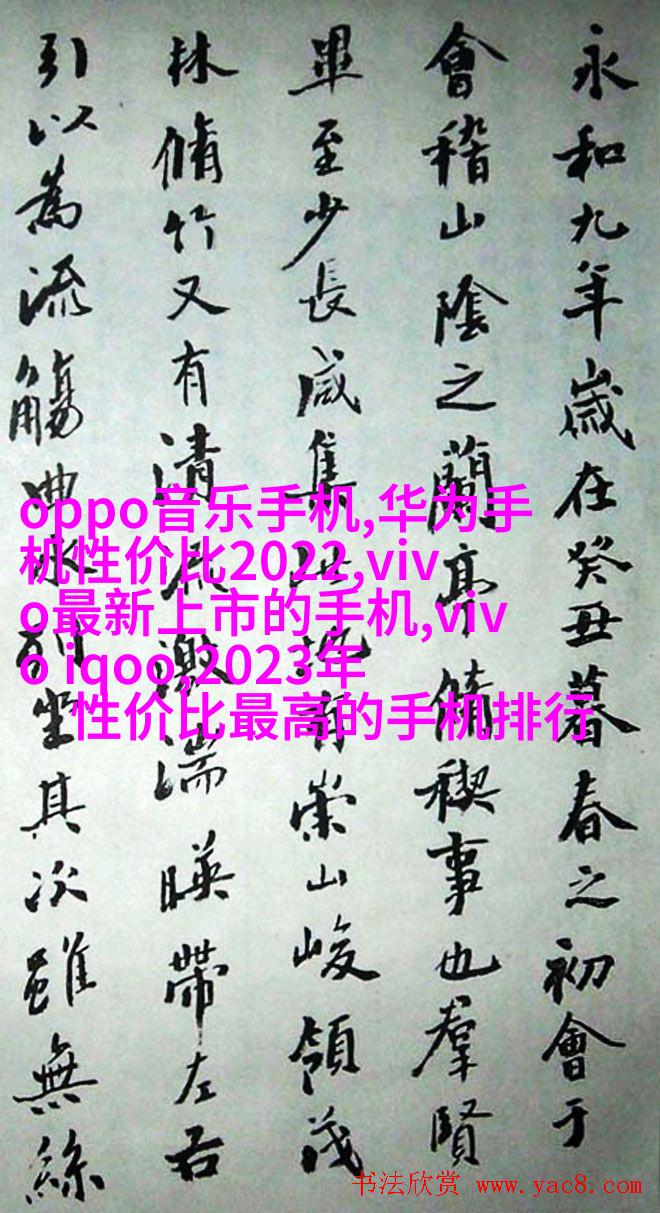 永和九年歲在癸丑暮春之初會于
會稽山陰之蘭亭脩稧事也羣賢
畢至少長咸集此地有崇山峻領茂
林脩竹又有清流激湍暎帶左右
引以為流觴曲水列坐其次雖無絲
oppo音乐手机,华为手
机性价比2022,viv
o最新上市的手机,viv
o iqoo,2023年
性价比最高的手机排行
书法欣赏 www.yac8.com